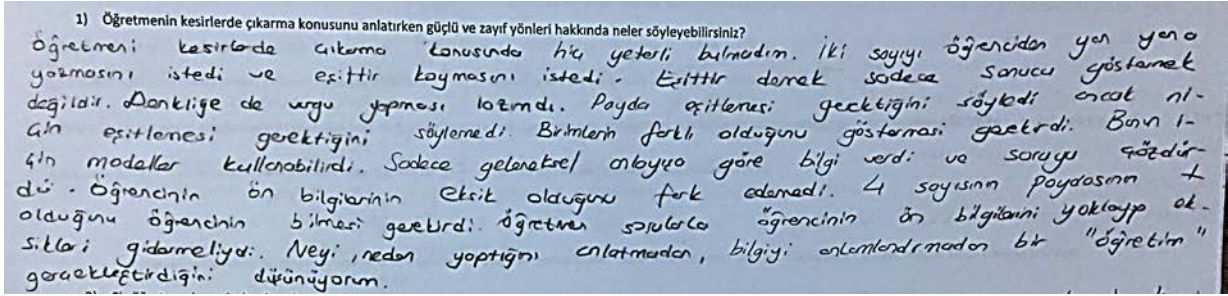 1) Öğretmenin kesirlerde çıkarma konusunu anlatırken güçlü ve zayıf yönleri hakkında neler söyleyebilirsiniz?
Öğretmeni kesirlerde çıkarma konusunda hiç yeterli bulmadım. İki sayıyı öğrenciden yan yana
yazmasını istedi ve eşittir koymasını istedi. Eşittir demek sadece sonucu göstermek
değildir. Denkliğe de vurgu yapması lazımdı. Payda eşitlemesi gerektiğini söyledi ancak ni-
çin eşitlemesi gerektiğini söylemedi. Birimlerin farklı olduğunu göstermesi gerekirdi. Bunun i-
çin modeller kullanabilirdi. Sadece geleneksel anlayışa göre bilgi verdi ve soruyu çözdür-
dü. Öğrencinin ön bilgilerinin eksik olduğunu fark edemedi. 4 sayısının paydasının 1
olduğunu öğrencinin bilmesi gerekirdi. Öğretmen sorularla öğrencinin ön bilgilerini yoklayıp ek-
sikleri gidermeliydi. Neyi, neden yaptığını anlatmadan, bilgiyi anlamlandırmadan bir "öğretim"
gerçekleştirdiğini düşünüyorum.